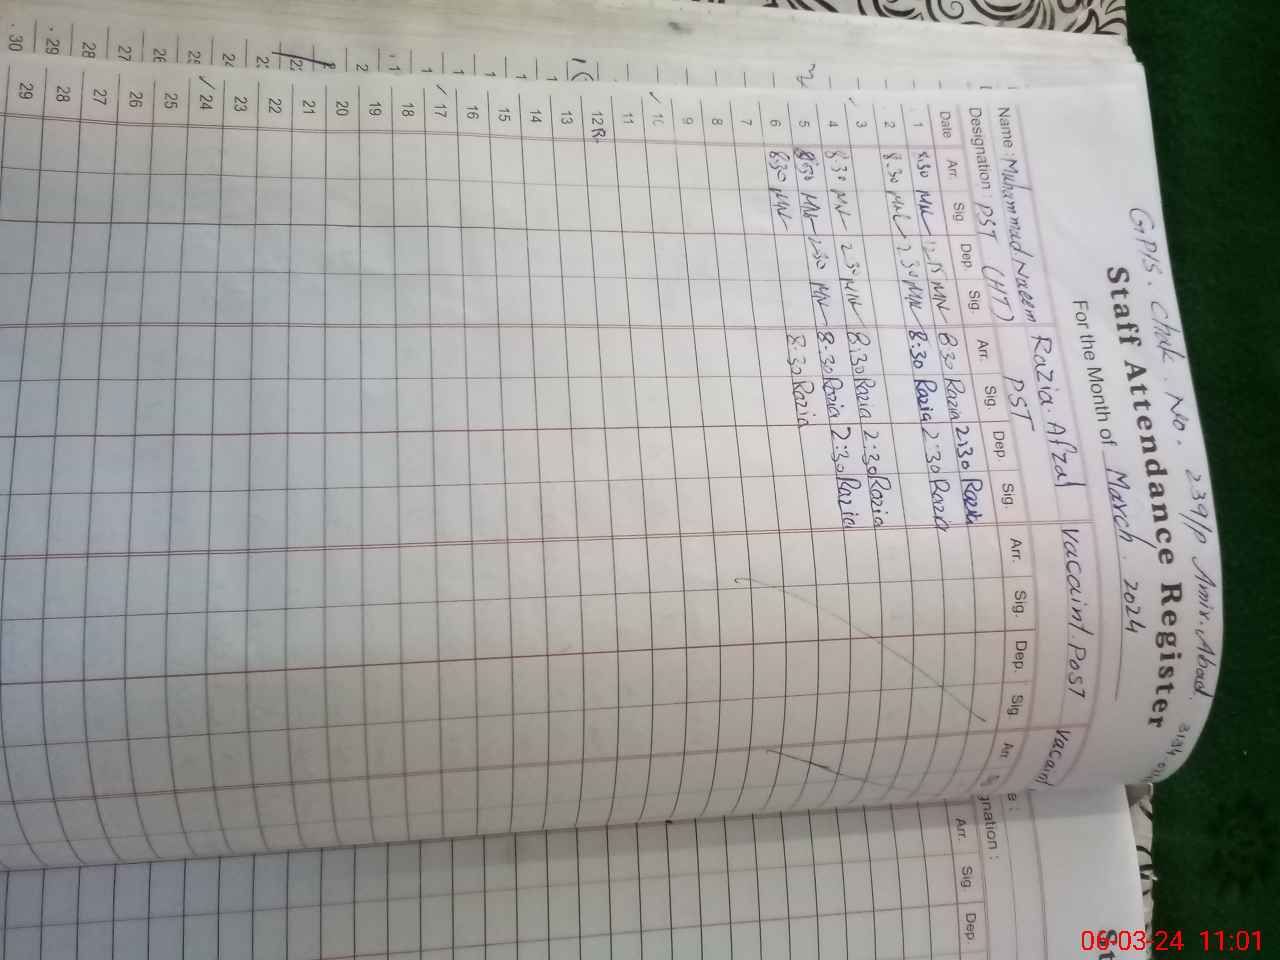 GPS. Chak. No. 239/P Amir. Abad.
Staff Attendance Register
For the Month of March. 2024
Name : Muhammad Naeem Razia. Afzal Vacaint. Post Vacaint
Designation : PST (HT) PST
Date Arr. Sig Dep. Sig. Arr. Sig. Dep. Sig. Arr. Sig. Dep. Sig An
1 8:30 MN 12:15 MN 8:30 Razia 2:30 Razia
2 8:30 MN 2:30 MN 8:30 Razia 2:30 Razia
3
4 8:30 MN 2:30 MN 8:30 Razia 2:30 Razia
5 8:30 MN 2:30 MN 8:30 Razia 2:30 Razia
6 8:30 MN 8:30 Razia
7
8
9
10
11
12
13
14
15
16
17
18
19
20
21
22
23
24
25
26
27
28
29
gnation :
Arr. Sig. Dep.
St
28
27
29
30
06-03-24 11:01